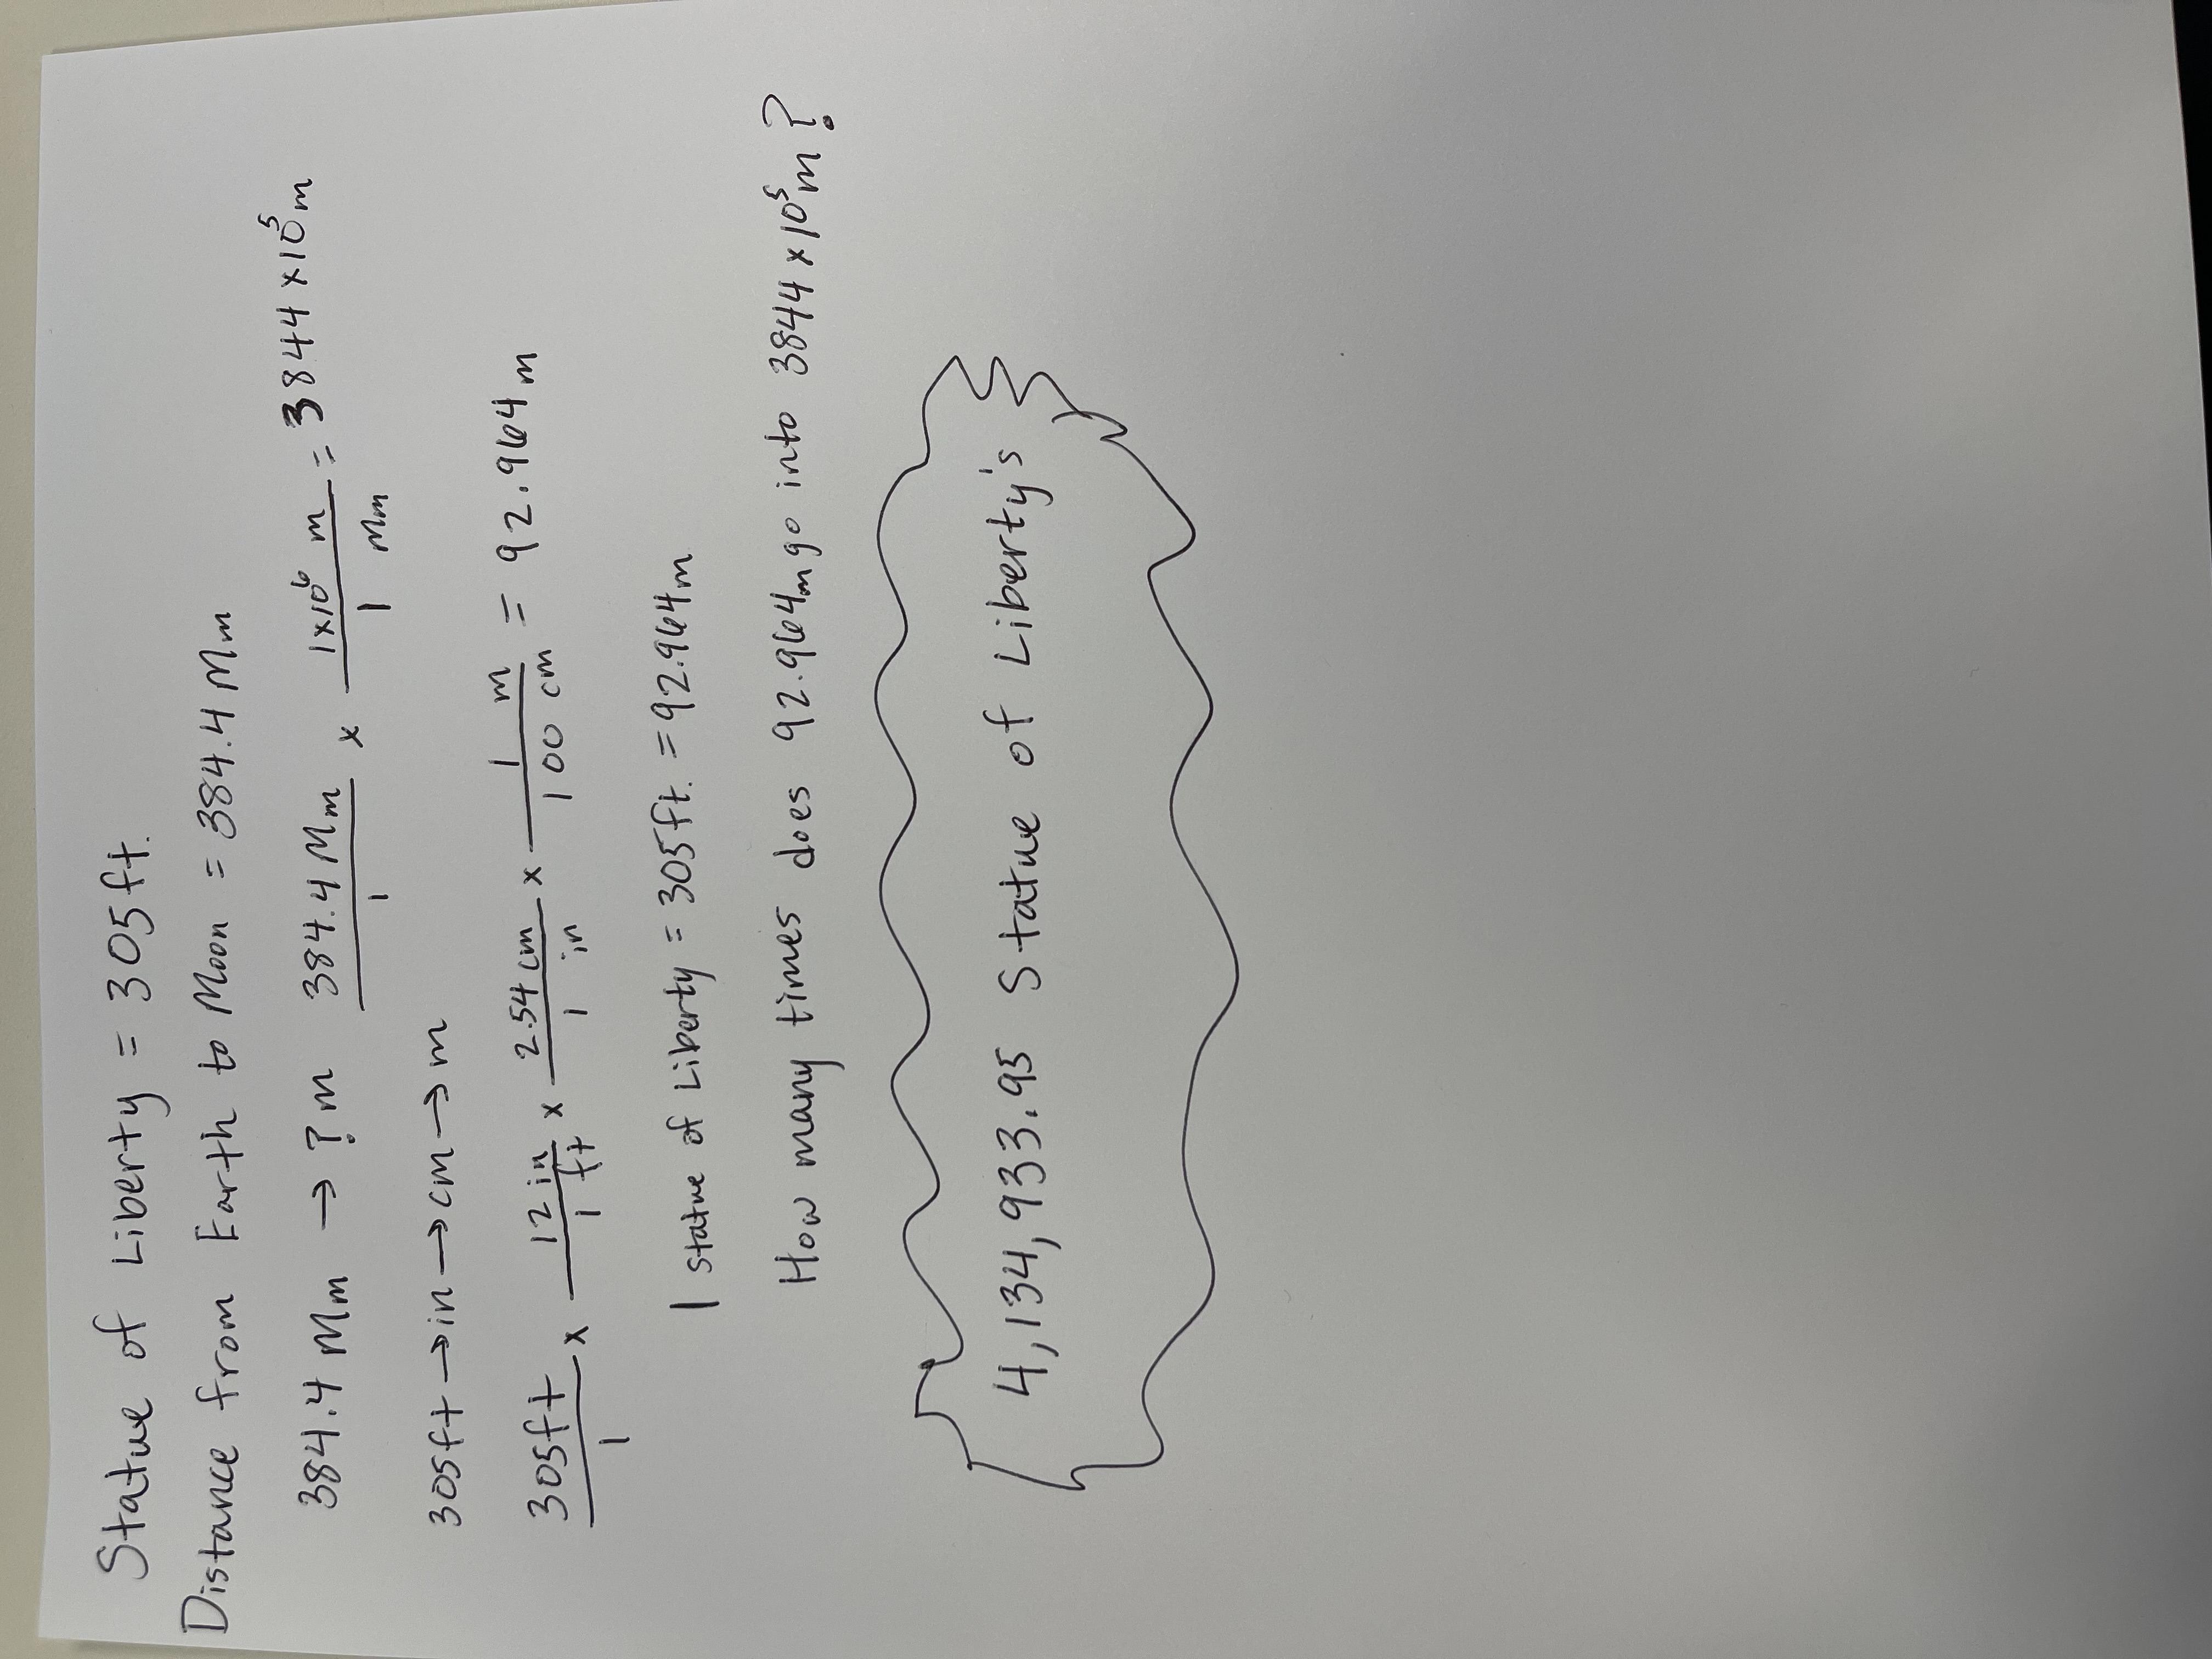 Statue of Liberty = 305ft.
Distance from Earth to Moon = 384.4 Mm
384.4 Mm → ? m 384.4 Mm / 1 x 1x10⁶ m / 1 Mm = 3844 x10⁵m
305ft → in → cm → m
305ft / 1 x 12 in / 1 ft x 2.54 cm / 1 in x 1 m / 100 cm = 92.964 m
1 Statue of Liberty = 305ft. = 92.964m
How many times does 92.964m go into 3844 x10⁵m ?
4,134,933.95 Statue of Liberty's